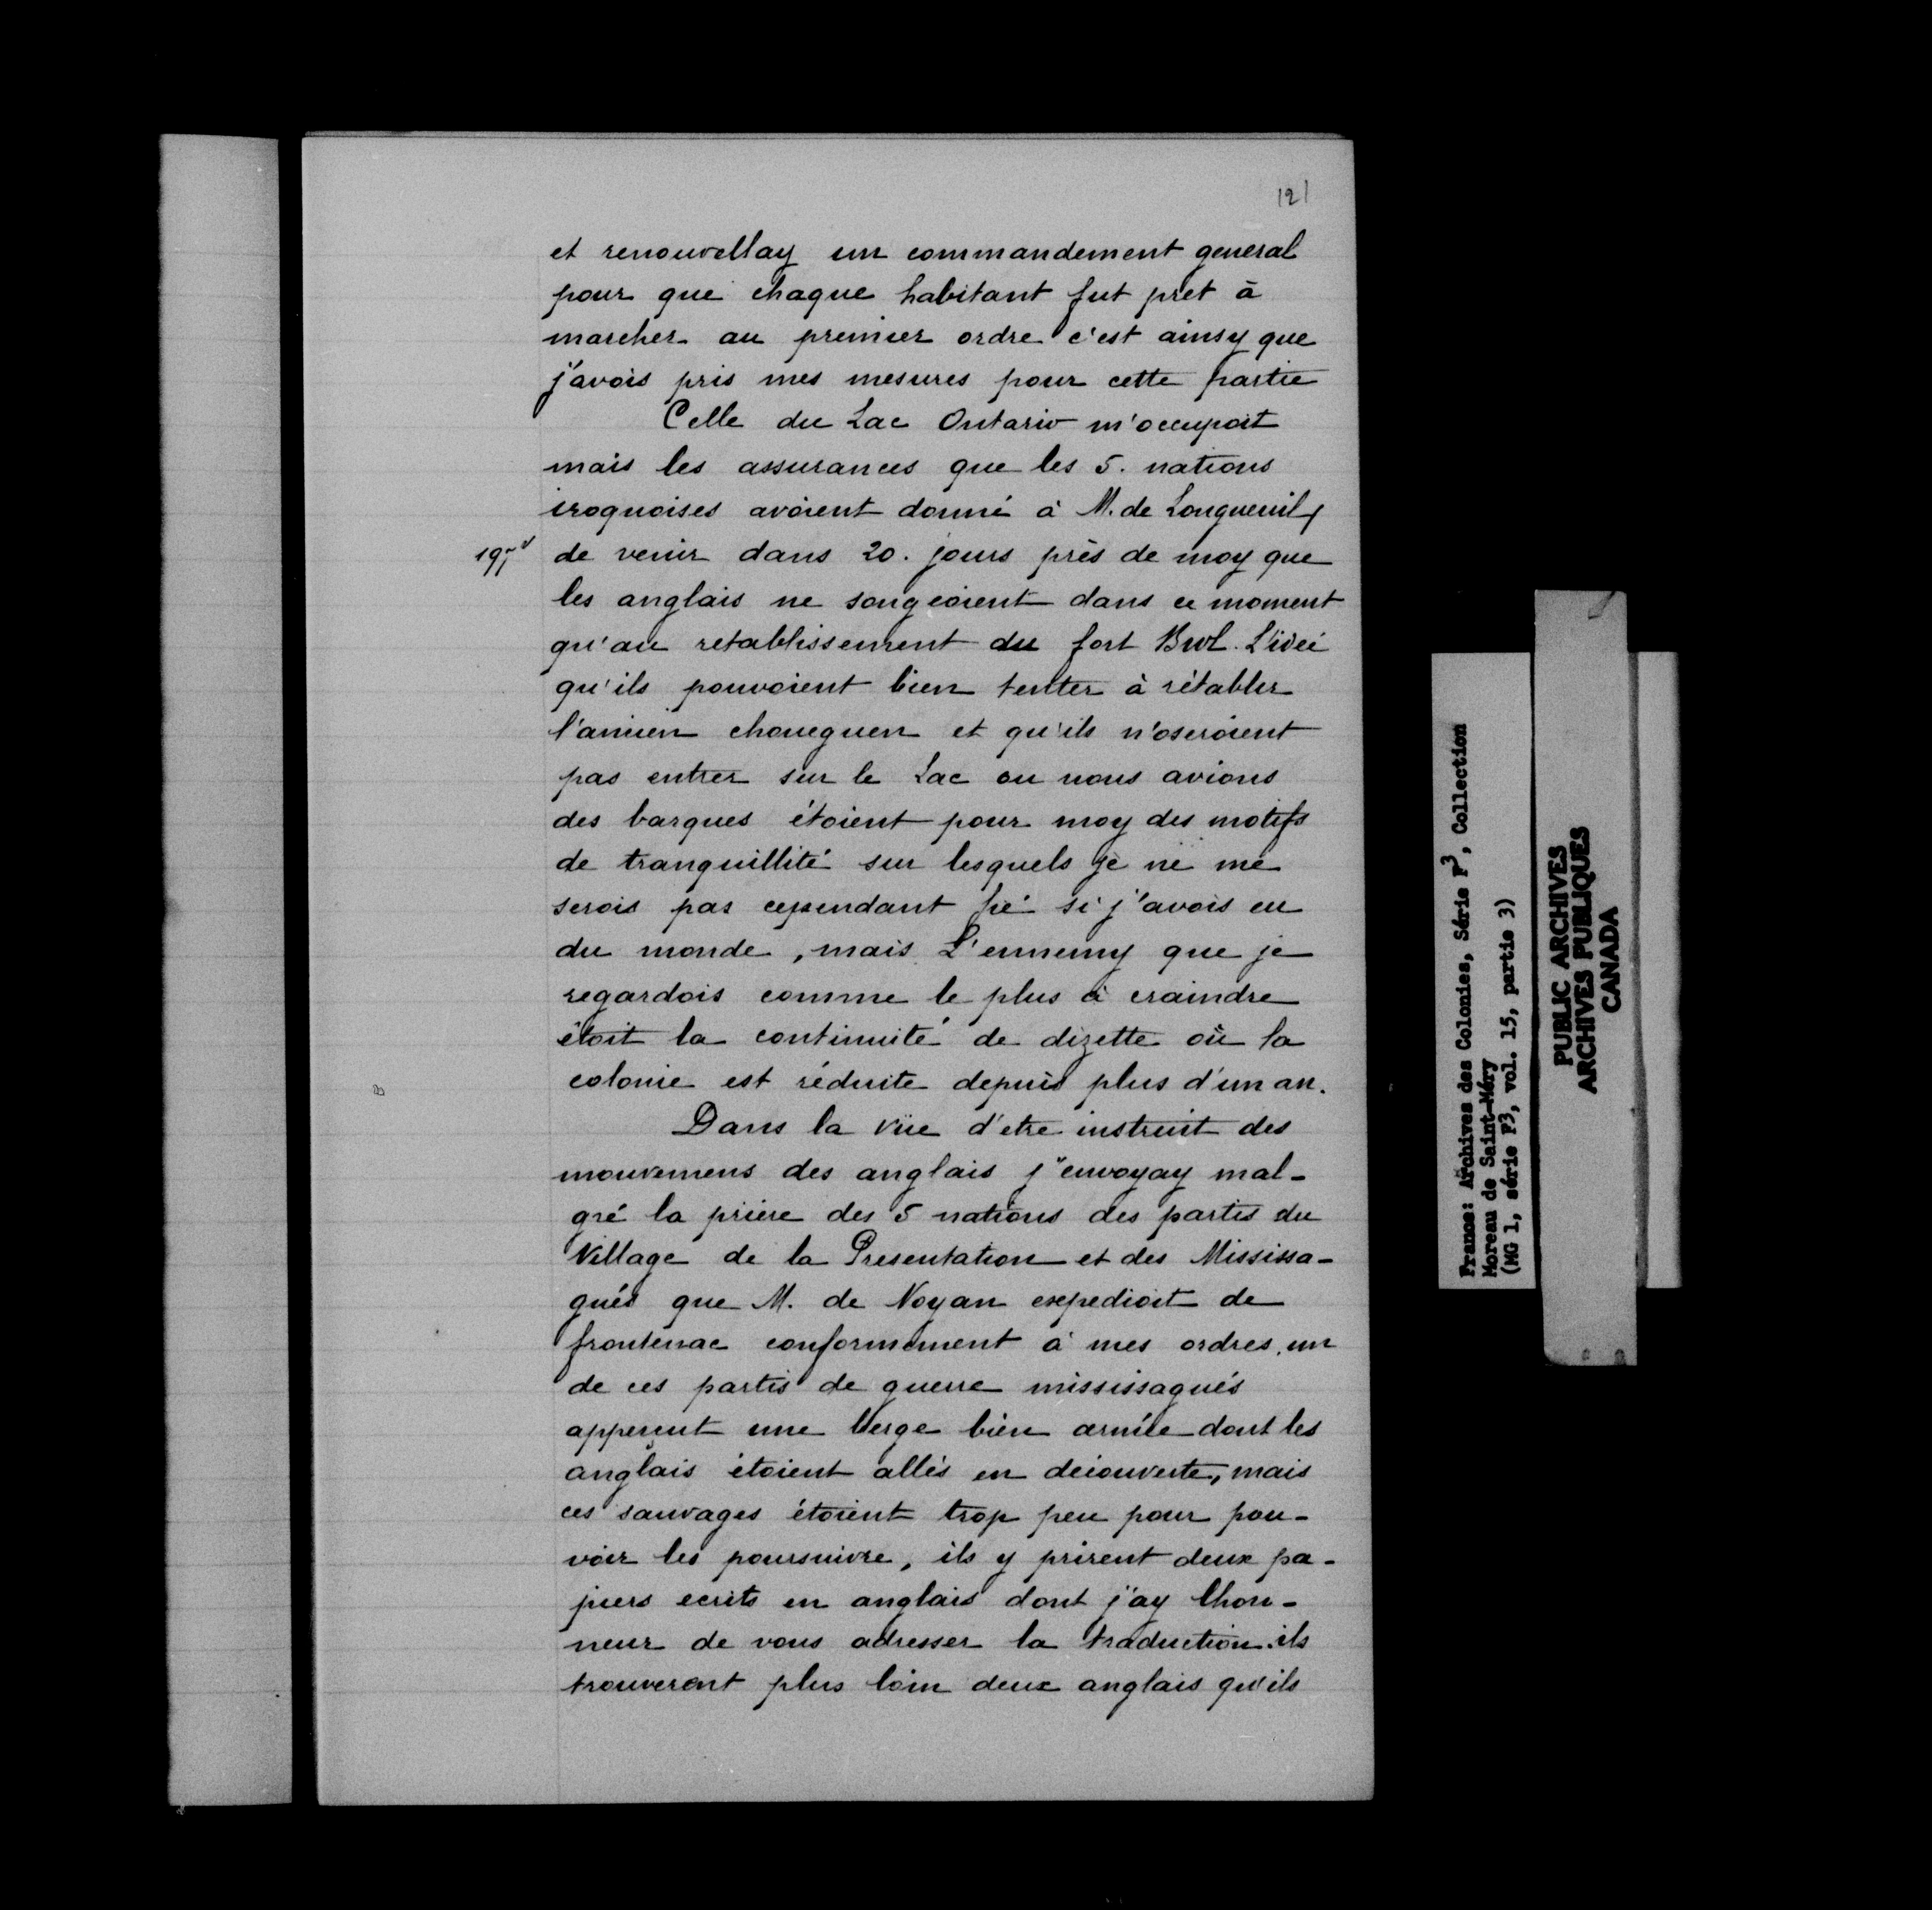 121
et renouvellay un commandement general
pour que chaque habitant fut pret à
marcher au premier ordre c'est ainsy que
j'avois pris mes mesures pour cette partie
Celle du Lac Ontario m'occupoit
mais les assurances que les 5. nations
iroquoises avoient donné à M. de Longueuil
de venir dans 20. jours près de moy que
les anglais ne songeoient dans ce moment
qu'au retablissement du fort Bwl. L'ideé
qu'ils pouvoient bien tenter à rétablir
l'ancien choueguen et qu'ils n'oseroient
pas entrer sur le Lac ou nous avions
des barques étoient pour moy des motifs
de tranquillité sur lesquels je ne me
serois pas cependant fié si j'avois eu
du monde, mais L'ennemy que je
regardois comme le plus à craindre
étoit la continuité de dizette où la
colonie est réduite depuis plus d'un an.
Dans la vüe d'etre instruit des
mouvemens des anglais j'envoyay mal-
gré la priere des 5 nations des partis du
Village de la Presentation et des Mississa-
gués que M. de Noyan expedioit de
frontenac conformément à mes ordres. un
de ces partis de guerre mississagués
apperçut une berge bien armée dont les
anglais étoient allés en découverte, mais
ces sauvages étoient trop peu pour pou-
voir les poursuivre, ils y prirent deux pa-
piers ecrits en anglais dont j'ay lhon-
neur de vous adresser la traduction. ils
trouverent plus loin deux anglais qu'ils
France: Archives des Colonies, Série F3, Collection
Moreau de Saint-Méry
(MG 1, série F3, vol. 15, partie 3)
PUBLIC ARCHIVES
ARCHIVES PUBLIQUES
CANADA